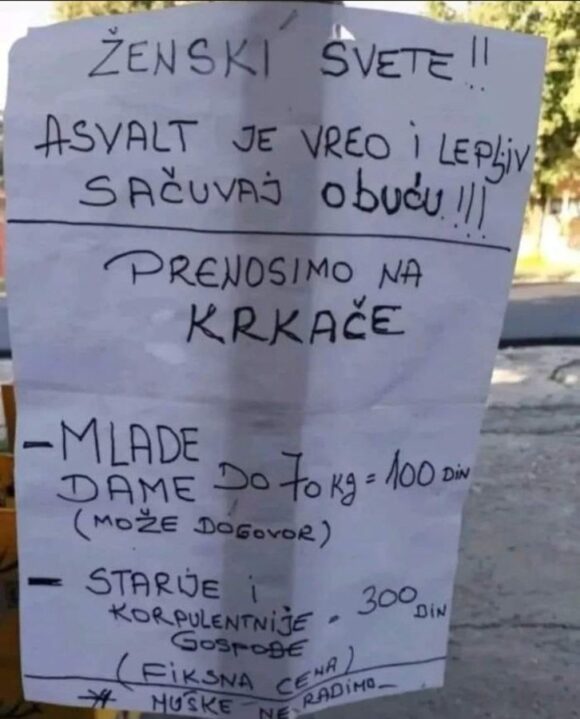 ŽENSKI SVETE!!
ASVALT JE VREO I LEPLJIV
SAČUVAJ OBUĆU!!!
PRENOSIMO NA
KRKAČE
- MLADE
DAME DO 70 KG = 100 DIN
(MOŽE DOGOVOR)
- STARIJE i
KORPULENTNIJE - 300 DIN
GOSPOĐE
(FIKSNA CENA)
* MUŠKE NE RADIMO -